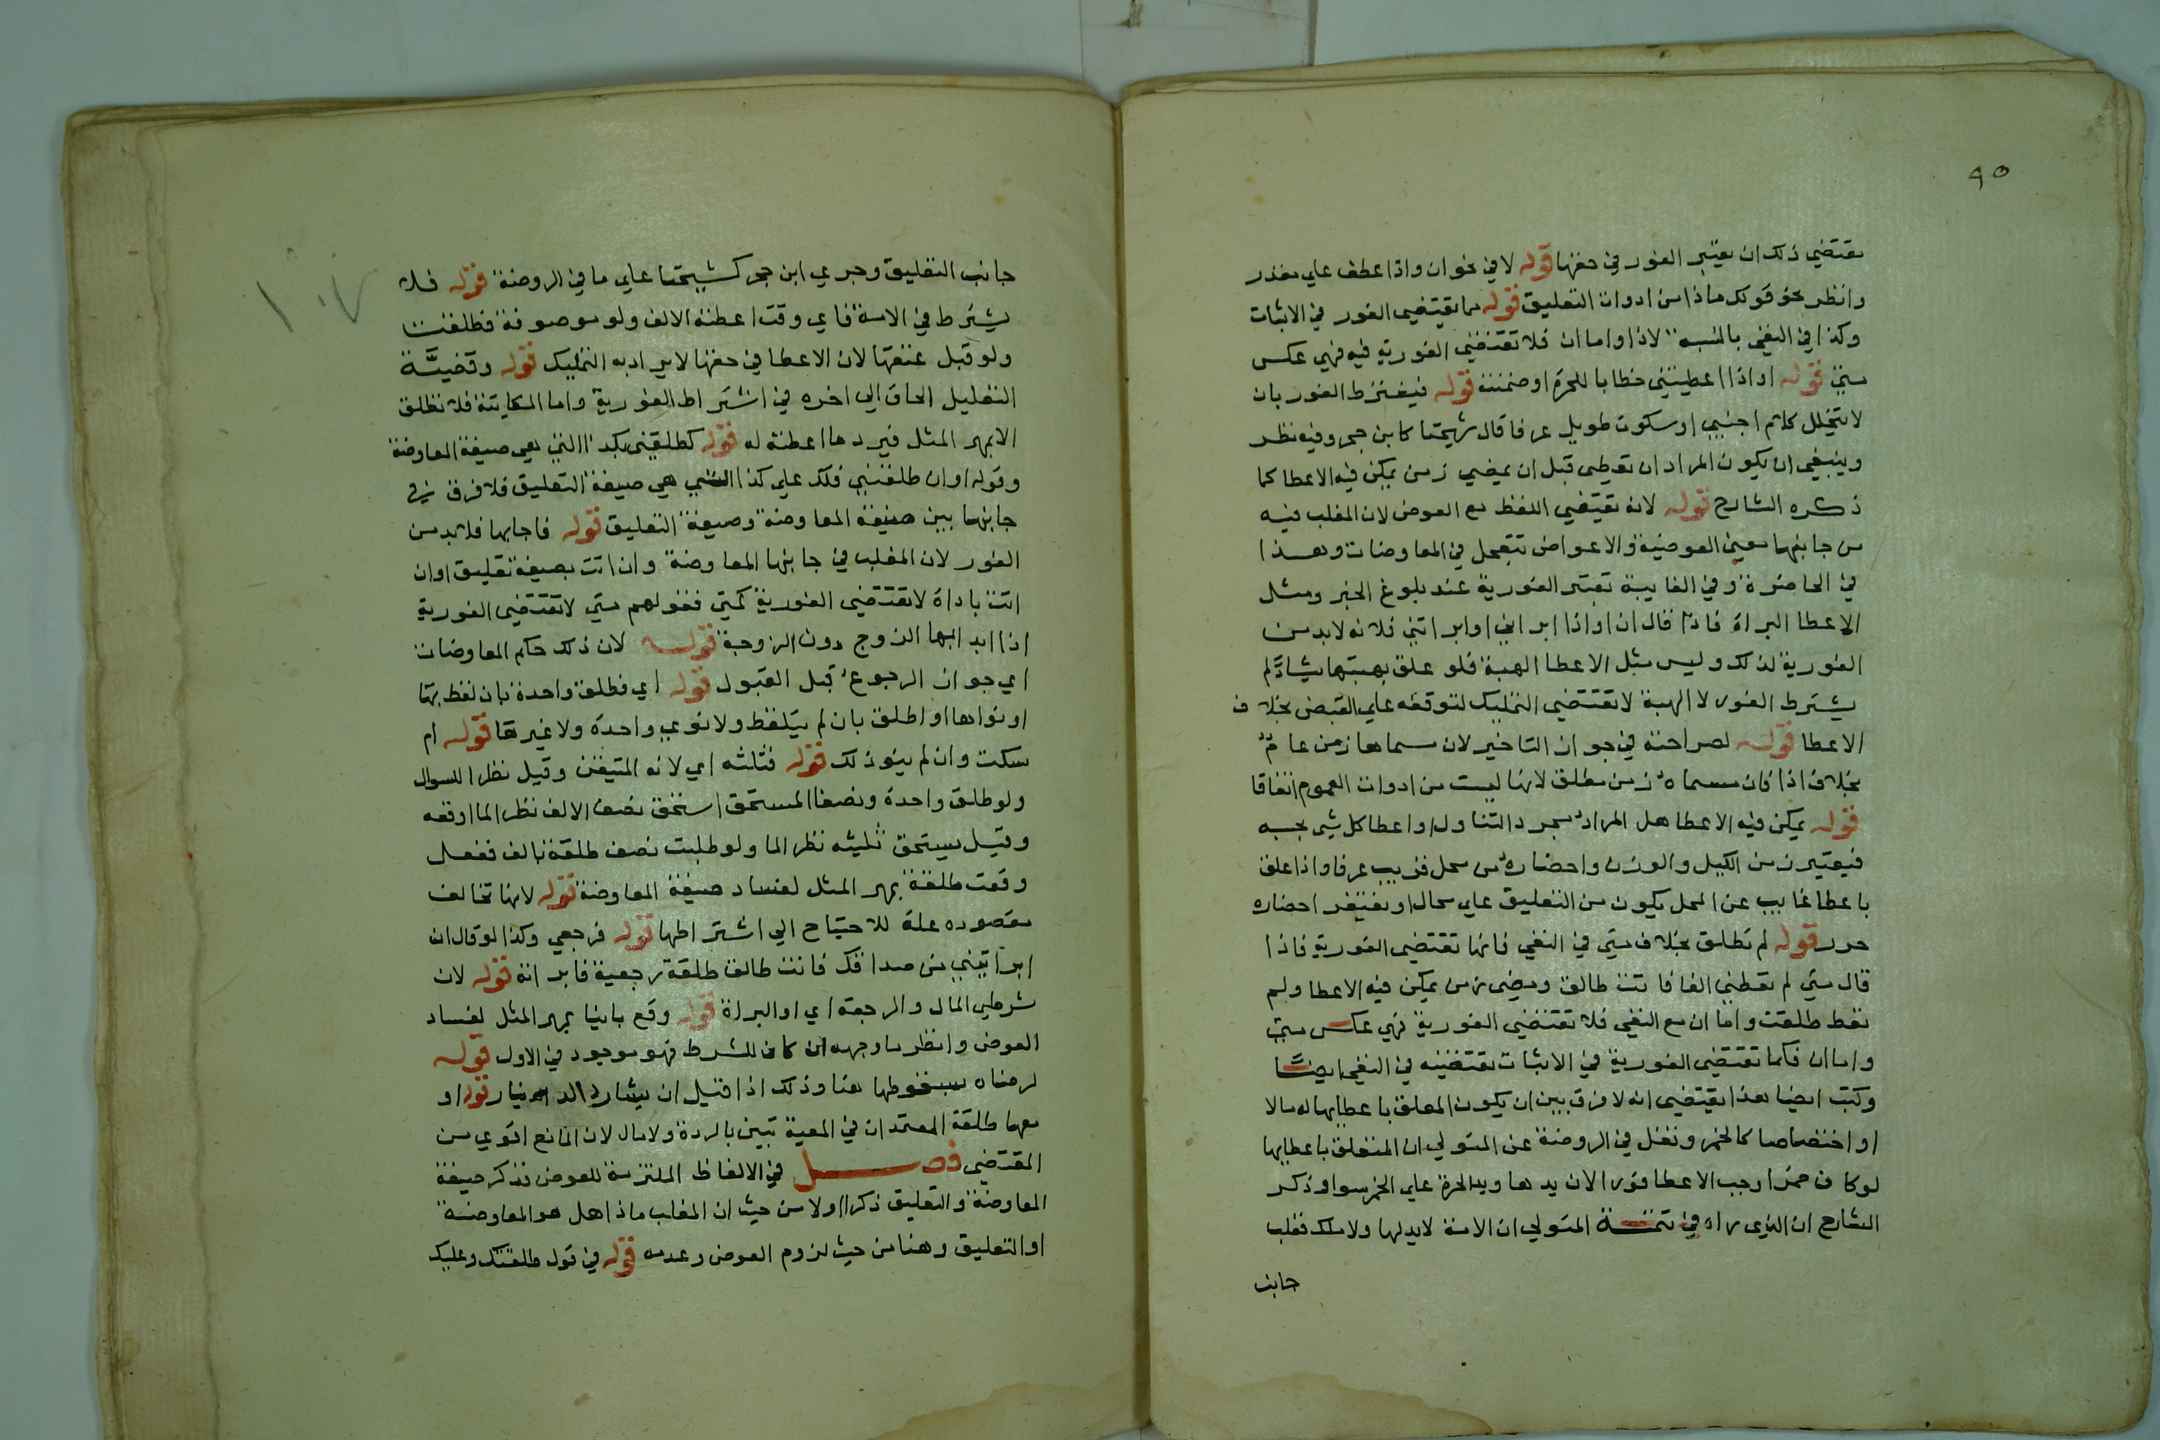 ٩٥
يقتضي ذلك ان يعتبر الفور في حقها قوله لا في نحو ان واذا عطف علي مقدر
وانظر نحو قولك ماذا من ادوات التعليق قوله مما يقتضي الفور في الاثبات
وكذا في النفي بالنسبة لاذا واما ان فلا تقتضي الفورية فيه فهي عكس
متي قوله او اذا اعطيتني خطابا للحرة او ضمنت قوله فيشترط الفور بان
لا يتخلل كلام اجنبي او سكوت طويل عرفا قال شيخنا كابن حجر وفيه نظر
وينبغي ان يكون المراد ان تعطي قبل ان يمضي زمن يمكن فيه الاعطا كما
ذكره الشارح قوله لانه يقتضي اللفظ مع العوض لان المغلب فيه
من جانبها معني العوضية والاعواض تتعجل في المعاوضات وهذا
في الحاضرة وفي الغايبة تعتبر الفورية عند بلوغ الخبر ومثل
الاعطا البراة فاذا قال ان او اذا ابراتني او ابراتني فلانه لابد من
الفورية لذلك وليس مثل الاعطا الهبة فلو علق بهبتها شيا لم
يشترط الفور لا الهبة لا تقتضي التمليك لتوقفه علي القبض بخلاف
الاعطا قوله لصراحته في جواز التاخير لان مسماها زمن عام
بخلاف اذا فان مسماه زمن مطلق لانها ليست من ادوات العموم اتفاقا
قوله يمكن فيه الاعطا هل المراد مجرد التناول او اعطا كل شي بحسبه
فيعتبر زمن الكيل والوزن واحضاره من محل قريب عرفا واذا علق
باعطا غايب عن المحل يكون من التعليق علي محال او يغتفر احضاره
حرر قوله لم تطلق بخلاف متي في النفي فانها تقتضي الفورية فاذا
قال متي لم تعطني الفا فانت طالق ومضي زمن يمكن فيه الاعطا ولم
تعط طلقت واما ان مع النفي فلا تقتضي الفورية فهي عكس متي
واما ان فكما تقتضي الفورية في الاثبات تقتضيه في النفي ايضا
وكتب ايضا هذا يقتضي انه لا فرق بين ان يكون المعلق باعطايها له مالا
او اختصاصا كالخمر ونقل في الروضة عن المتولي ان المتعلق باعطايها
لو كان خمرا وجب الاعطا فورا لان يدها ويد الحرة علي الخمر سوا وذكر
الشارح ان الذي راه في تتمة المتولي ان الامة لا يد لها ولا ملك فغلب
جانب
١٠٧
جانب التعليق وجري ابن حجر كشيخنا علي ما في الروضة قوله فلا
يشترط في الامة فاي وقت اعطته الالف ولو موصوفة فطلقت
ولو قبل عتقها لان الاعطا في حقها لا يراد به التمليك قوله وقضية
التعليل الحاق الي اخره في اشتراط الفورية واما المكاتبة فلا تطلق
الا بمهر المثل فيرد ما اعطته له قوله كطلقني بكذا التي هي صيغة المعاوضة
وقوله او ان طلقتني فلك علي كذا التي هي صيغة التعليق فلا فرق في
جانبها بين صيغة المعاوضة وصيغة التعليق قوله فاجابها فلا بد من
الفور لان المغلب في جانبها المعاوضة وان اتت بصيغة تعليق او ان
اتت باداة لا تقتضي الفورية كمتي فقولهم متي لا تقتضي الفورية
اذا ابدا بها الزوج دون الزوجة قوله لان ذلك حكم المعاوضات
اي جواز الرجوع قبل القبول قوله اي فطلق واحدة بان لفظ بها
او نواها او اطلق بان لم يتلفظ ولا نوي واحدة ولا غيرها قوله ام
سكت وان لم ينو ذلك قوله فثلثه اي لانه المتيقن وقيل نظرا للسوال
ولو طلق واحدة ونصفا المستحق استحق نصف الالف نظرا لما اوقعه
وقيل يستحق ثلثيه نظرا لما ولو طلبت نصف طلقة بالف ففعل
وقعت طلقة بمهر المثل لفساد صيغة المعاوضة قوله لانها تخالف
مقصوده علة للاحتياج الي اشتراطها قوله فرجعي وكذا لو قال ان
ابراتيني من صداقك فانت طالق طلقة رجعية فابراته قوله لان
شرطي المال والرجعة اي او البراة قوله وقع باينا بمهر المثل لفساد
العوض وانظر ما وجهه ان كان للشرط فهو موجود في الاول قوله
لرضاه بسقوطها هنا وذلك اذا قيل ان الدينار قوله او
معها طلقة المعتمد ان في المعية تبين بالردة ولا مال لان المانع اقوي من
المقتضي فصل في الالفاظ الملتزمة للعوض نذكر صيغة
المعاوضة والتعليق ذكر اولا من حيث ان المغلب ماذا هل هو المعاوضة
او التعليق وهنا من حيث لزوم العوض وعدمه قوله في قول طلقتك وعليك